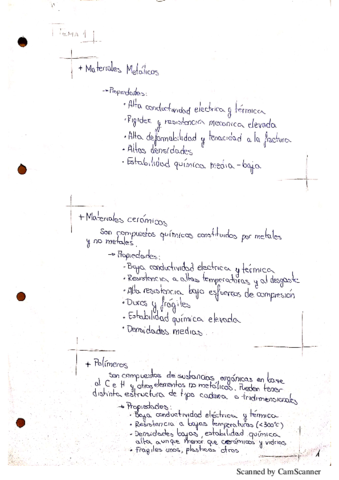 Tema 1
+ Materiales Metálicos
→ Propiedades:
• Alta conductividad eléctrica y térmica
• Rigidez y resistencia mecánica elevada
• Alta deformabilidad y tenacidad a la fractura
• Altas densidades
• Estabilidad química media-baja
+ Materiales cerámicos
Son compuestos químicos constituidos por metales
y no metales.
→ Propiedades:
• Baja conductividad electrica y térmica
• Resistencia a altas temperaturas y al desgaste
• Alta resistencia bajo esfuerzos de compresión
• Duros y frágiles
• Estabilidad química elevada
• Densidades medias.
+ Polímeros
Son compuestos de sustancias orgánicas en base
al C e H y otros elementos no metálicos. Pueden tener
distinta estructura de tipo cadena o tridimensionales
→ Propiedades:
• Baja conductividad eléctrica y térmica
• Resistencia a bajas temperaturas (<300°C)
• Densidades bajas, estabilidad química
alta aunque menor que cerámicos y vidrios
• Frágiles unos, plásticos otros
1
Scanned by CamScanner